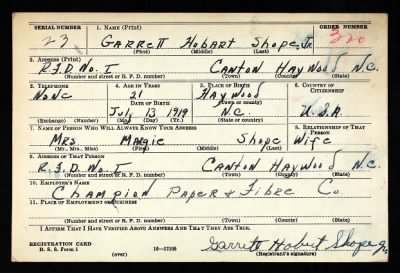 SERIAL NUMBER 1. NAME (Print) ORDER NUMBER
23 GARRETT Hobart Shope, Jr 320
(First) (Middle) (Last)
2. ADDRESS (Print)
R.F.D No. 1 CANTON HAYWOOD N.C.
(Number and street or R. F. D. number) (Town) (County) (State)
3. TELEPHONE 4. AGE IN YEARS 5. PLACE OF BIRTH 6. COUNTRY OF CITIZENSHIP
NONE 21 HAYWOOD
DATE OF BIRTH (Town) (County)
July 13 1919 N.C. U.S.A.
(Exchange) (Number) (Mo.) (Day) (Yr.) (State or country)
7. NAME OF PERSON WHO WILL ALWAYS KNOW YOUR ADDRESS 8. RELATIONSHIP OF THAT PERSON
Mrs. Magie Shope Wife
(Mr., Mrs., Miss) (First) (Middle) (Last)
9. ADDRESS OF THAT PERSON
R.F.D No. 1 CANTON HAYWOOD N.C.
(Number and street or R. F. D. number) (Town) (County) (State)
10. EMPLOYER'S NAME
Champion Paper & Fibre Co
11. PLACE OF EMPLOYMENT OR BUSINESS
(Number and street or R. F. D. number) (Town) (County) (State)
I AFFIRM THAT I HAVE VERIFIED ABOVE ANSWERS AND THAT THEY ARE TRUE.
REGISTRATION CARD
D. S. S. Form 1 (over) 16—17105 Garrett Hobert Shope Jr.
(Registrant's signature)